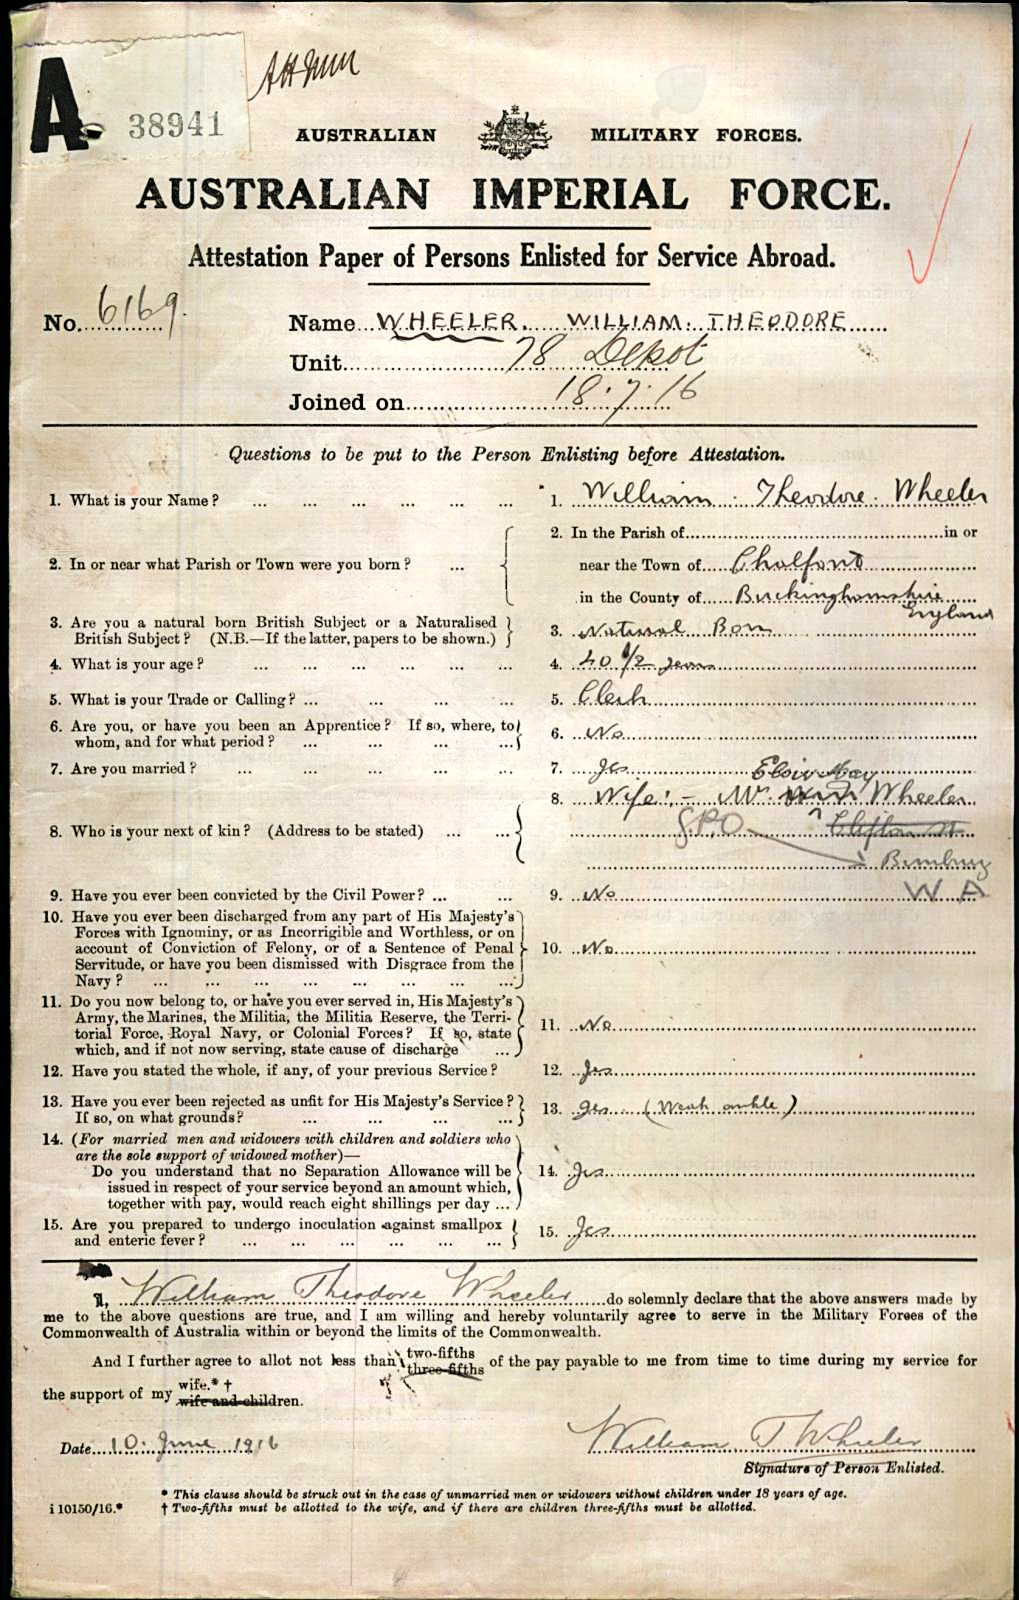 A 38941
AUSTRALIAN MILITARY FORCES.
AUSTRALIAN IMPERIAL FORCE.
Attestation Paper of Persons Enlisted for Service Abroad.
No. 6169. Name WHEELER. WILLIAM. THEODORE
Unit 78 Depot
Joined on 18.7.16
Questions to be put to the Person Enlisting before Attestation.
1. What is your Name? ... 1. William Theodore Wheeler
2. In or near what Parish or Town were you born? ... 2. In the Parish of in or
near the Town of Chalfont
in the County of Buckinghamshire
England
3. Are you a natural born British Subject or a Naturalised
British Subject? (N.B.—If the latter, papers to be shown.) 3. Natural Born
4. What is your age? ... 4. 40 1/2 years
5. What is your Trade or Calling? ... 5. Clerk
6. Are you, or have you been an Apprentice? If so, where, to
whom, and for what period? ... 6. No
7. Are you married? ... 7. Yes
8. Who is your next of kin? (Address to be stated) ... 8. Wife:- Mrs Elsie May Wheeler
G.P.O Clifton St
Bunbury
W A
9. Have you ever been convicted by the Civil Power? ... 9. No
10. Have you ever been discharged from any part of His Majesty's
Forces with Ignominy, or as Incorrigible and Worthless, or on
account of Conviction of Felony, or of a Sentence of Penal
Servitude, or have you been dismissed with Disgrace from the
Navy? ... 10. No
11. Do you now belong to, or have you ever served in, His Majesty's
Army, the Marines, the Militia, the Militia Reserve, the Terri-
torial Force, Royal Navy, or Colonial Forces? If so, state
which, and if not now serving, state cause of discharge ... 11. No
12. Have you stated the whole, if any, of your previous Service? 12. Yes
13. Have you ever been rejected as unfit for His Majesty's Service?
If so, on what grounds? ... 13. Yes (Weak ankle)
14. (For married men and widowers with children and soldiers who
are the sole support of widowed mother)—
Do you understand that no Separation Allowance will be
issued in respect of your service beyond an amount which,
together with pay, would reach eight shillings per day ... 14. Yes
15. Are you prepared to undergo inoculation against smallpox
and enteric fever? ... 15. Yes
I, William Theodore Wheeler do solemnly declare that the above answers made by
me to the above questions are true, and I am willing and hereby voluntarily agree to serve in the Military Forces of the
Commonwealth of Australia within or beyond the limits of the Commonwealth.
And I further agree to allot not less than two-fifths
three-fifths of the pay payable to me from time to time during my service for
the support of my wife.* †
wife and children.
Date 10 June 1916 William T Wheeler
Signature of Person Enlisted.
* This clause should be struck out in the case of unmarried men or widowers without children under 18 years of age.
i 10150/16.* † Two-fifths must be allotted to the wife, and if there are children three-fifths must be allotted.